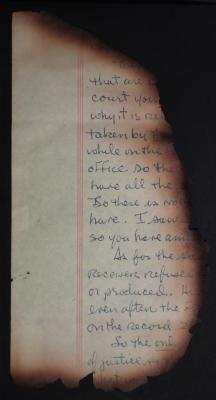 the
that are
court you
why it is
taken by
while on the
office so the
have all the
So there is no
have. I saw
so you have
As for the
receivers refuse
or produced. H
even after the
on the record
So the only
of justice